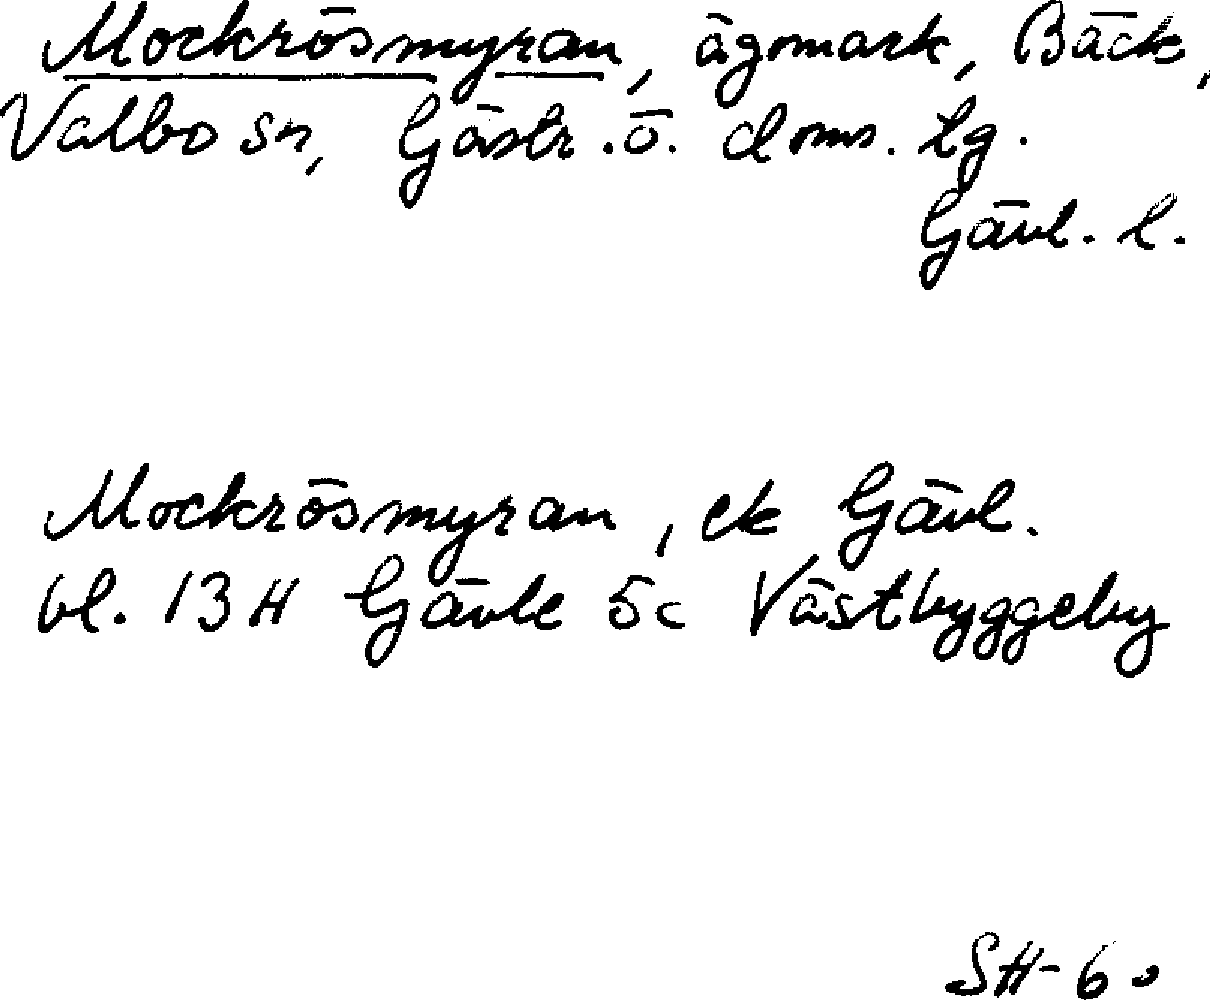 Mockrösmyran, ägomark, Bäck,
Valbo sn, Gästr. ö. doms. tg.
Gävl. l.
Mockrösmyran, ek Gävl.
bl. 13 H Gävle 5c Västbyggeby
SH-60